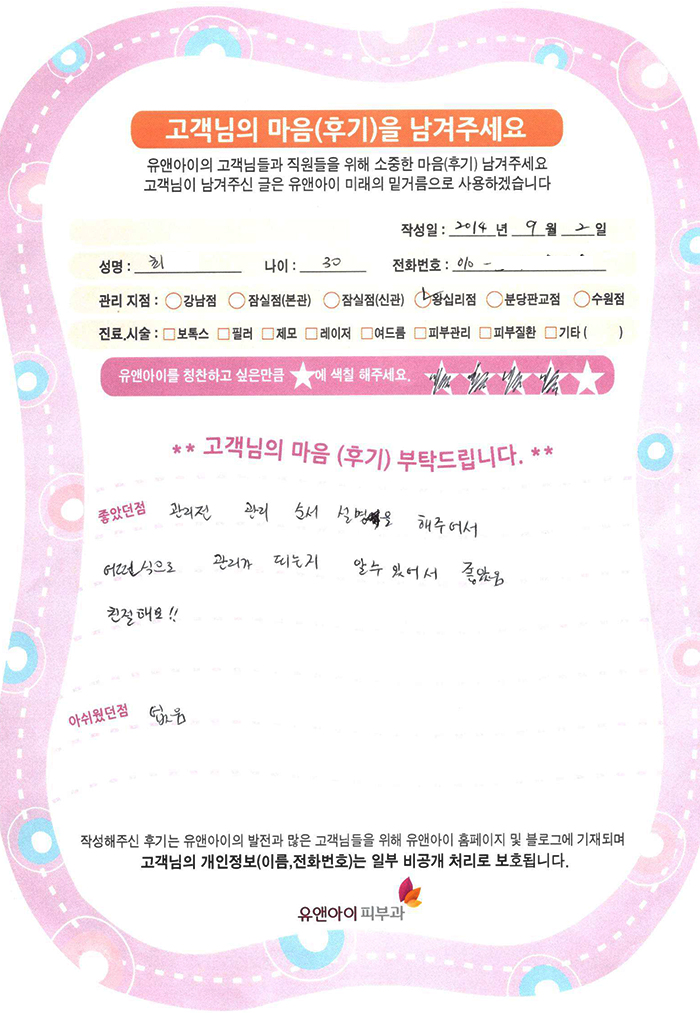 고객님의 마음(후기)을 남겨주세요
유앤아이의 고객님들과 직원들을 위해 소중한 마음(후기) 남겨주세요
고객님이 남겨주신 글은 유앤아이 미래의 밑거름으로 사용하겠습니다
작성일 : 2014 년 9 월 2 일
성명 : 최 나이 : 30 전화번호 : 010 -
관리 지점 : 강남점 잠실점(본관) 잠실점(신관) 왕십리점 분당판교점 수원점
진료.시술 : 보톡스 필러 제모 레이저 여드름 피부관리 피부질환 기타 ( )
유앤아이를 칭찬하고 싶은만큼 ★에 색칠 해주세요.
** 고객님의 마음 (후기) 부탁드립니다. **
좋았던점 관리전 관리 순서 설명을 해주어서
어떤식으로 관리가 되는지 알수 있어서 좋았음
친절해요!!
아쉬웠던점 없음
작성해주신 후기는 유앤아이의 발전과 많은 고객님들을 위해 유앤아이 홈페이지 및 블로그에 기재되며
고객님의 개인정보(이름,전화번호)는 일부 비공개 처리로 보호됩니다.
유앤아이 피부과